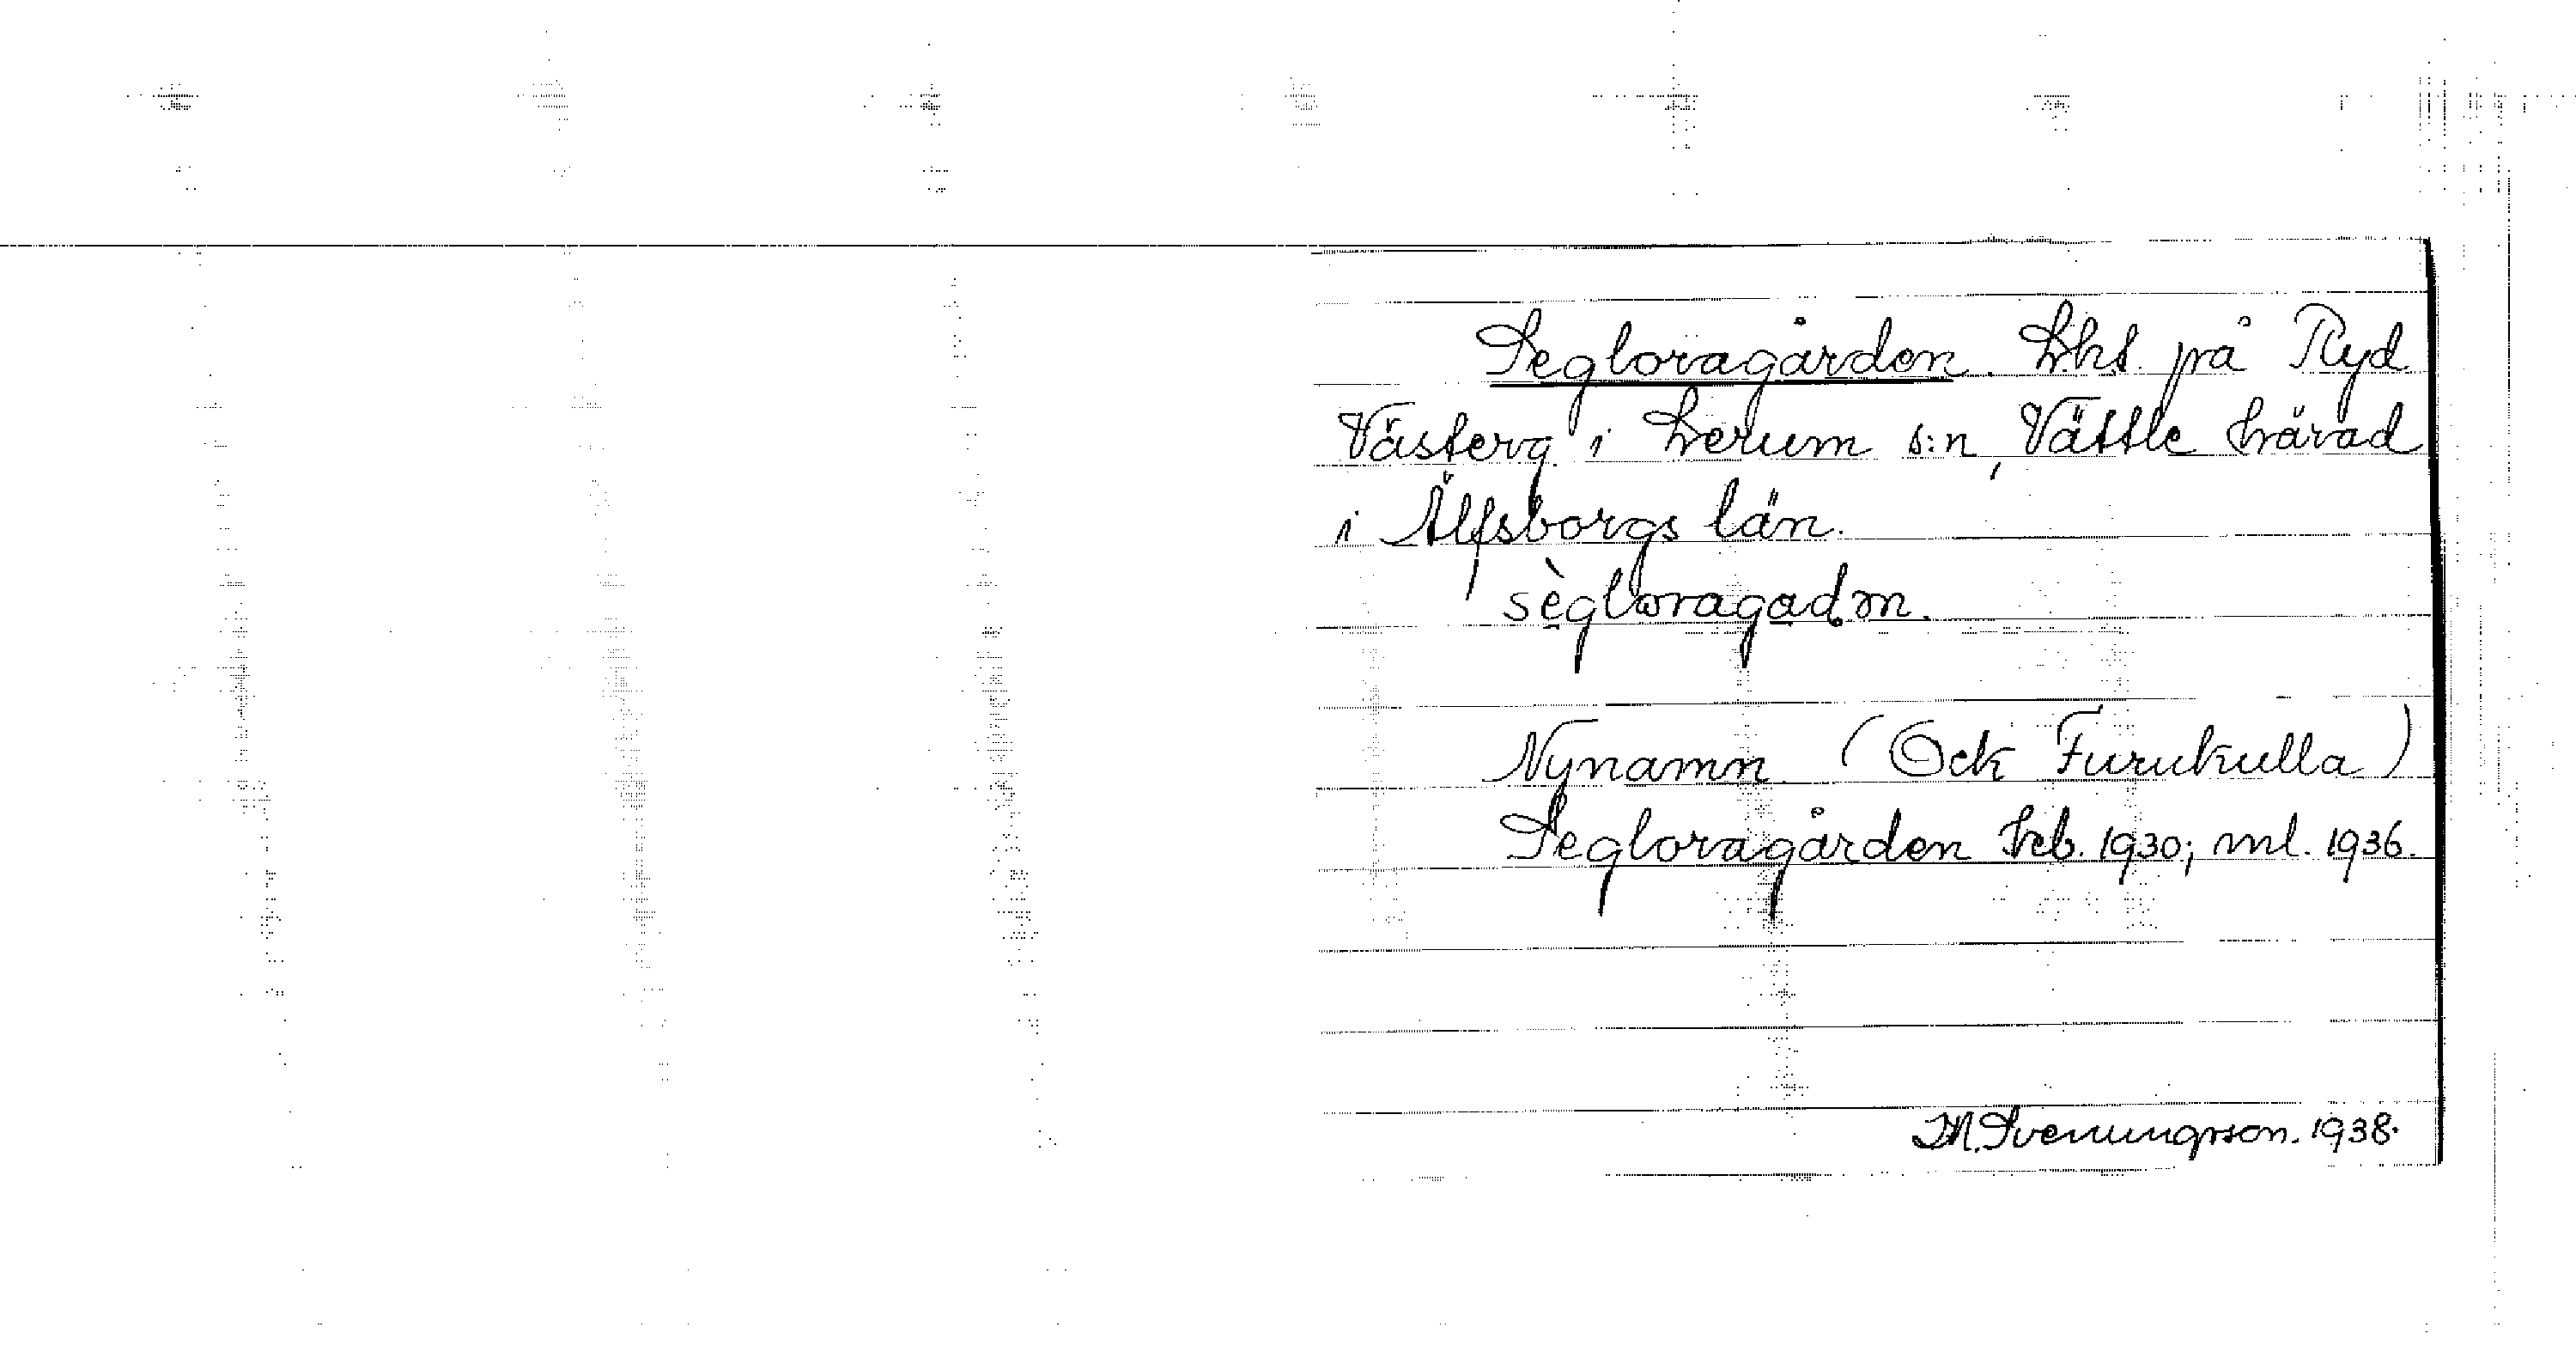 Segloragården. Lht. på Ryd
Västerg. i Lerum s:n, Vättle härad
i Älfsborgs län.
sègloragadɔn.
Nynamn. (Ock Furukulla)
Segloragården Jreb. 1930; ml. 1936.
H. Svenungsson. 1938.